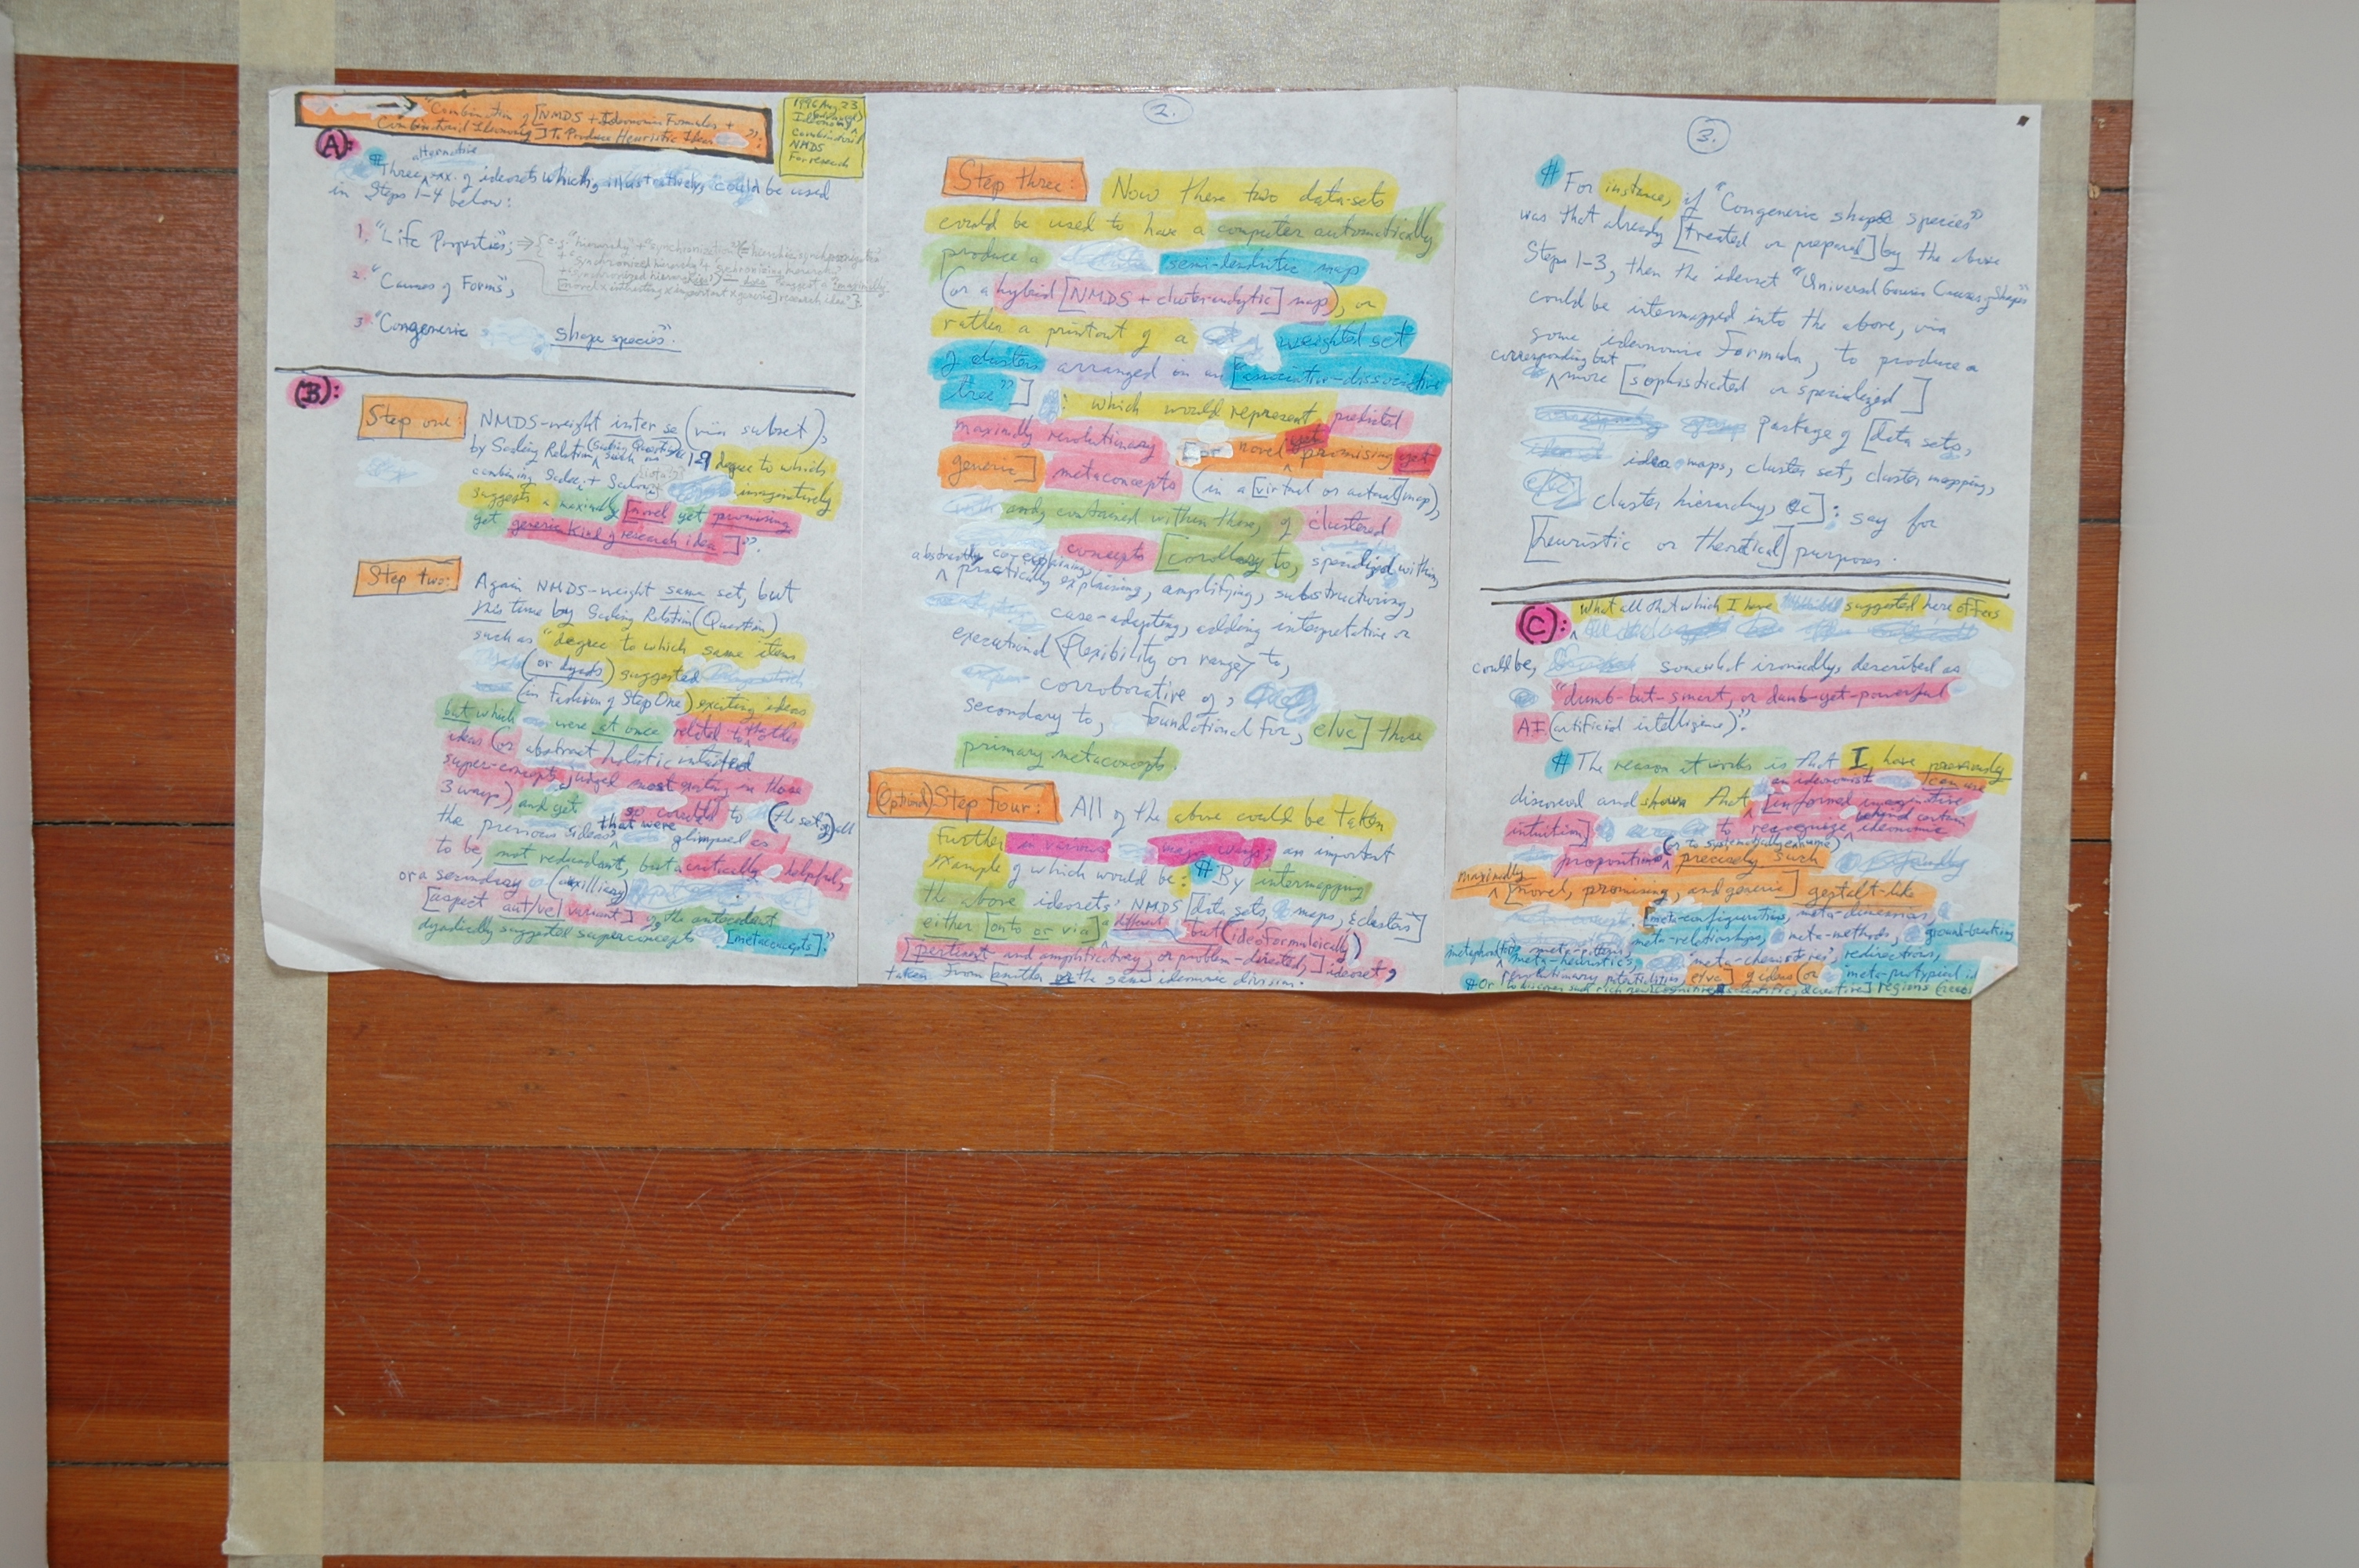 "Combination of [NMDS + Ideonomic Formulas +
Combinatorial Ideonomy] To Produce Heuristic Ideas".
1996 Aug 23
Ideonomy
Combinatorial
NMDS
For research
A:
# Three alternative ex. of ideosets which, illustratively, could be used
in Steps 1-4 below:
1. "Life Properties";
2. "Causes of Forms";
3. "Congeneric shape species".
(B):
Step one: NMDS-weight inter se (via subset),
by Scaling Relation (Scaling Question) such as "degree to which
combining
suggests a maximally [novel yet promising
yet generic kind of research idea]".
Step two: Again NMDS-weight same set, but
this time by Scaling Relation (Question)
such as "degree to which same items
(or dyads) suggested
(in fashion of Step One) existing ideas
but which were at once related to
ideas (or abstract holistic intuited
super-concepts judged most in those
3 ways), and yet so to (the set of) all
the previous ideas that were glimpsed as
to be, not redundant, but critically helpful,
or a secondary (auxilliary)
[aspect aut/vel variant] of the antecedent
dyadically suggested superconcepts [metaconcepts]."
2.
Step three: Now these two data-sets
could be used to have a computer automatically
produce a semi-dendritic map
(or a hybrid [NMDS + cluster-analytic] map), or
rather a printout of a weighted set
of clusters arranged in an ["associative-dissociative
tree"]: which would represent predicted
maximally revolutionary [or novel yet promising yet
generic] metaconcepts (in a [virtual or actual] map),
and, contained within these, of clustered
concepts [corollary to, specialized within,
abstractly explaining,
practically explaining, amplifying, substructuring,
case-adapting, adding interpretative or
executional <flexibility or range> to,
corroborative of,
secondary to, foundational for, e/vc] those
primary metaconcepts.
(Optional) Step four: All of the above could be taken
further in various major ways; an important
example of which would be: # By intermapping
the above ideosets' NMDS [data sets, maps, & clusters]
either [onto or via] a different but (ideoformulaically)
[pertinent and amplificatory, or problem-directed,] ideoset,
taken from [another or the same] ideonomic division.
3.
# For instance, if "Congeneric shape species"
was that already [treated or prepared] by the above
Steps 1-3, then the ideoset "Universal Generic Causes of Shapes"
could be intermapped into the above, via
some ideonomic Formula, to produce a
corresponding but
more [sophisticated or specialized]
package of [data sets,
idea maps, cluster set, cluster mapping,
cluster hierarchy, etc]: say for
[heuristic or theoretical] purposes.
(C): What all that which I have suggested here offers
could be, somewhat ironically, described as
"dumb-but-smart, or dumb-yet-powerful
AI (artificial intelligence)".
# The reason it works is that I have previously
discovered and shown that an ideonomist can use
[informed imaginative
intuition] to recognize, behind certain ideonomic
propositions (or to systematically examine) precisely such
maximally [novel, promising, and generic] gestalt-like
[meta-configurations, meta-dimensions,
meta-relationships, meta-methods, ground-breaking
metaphors, meta-patterns,
meta-heuristics, "meta-chemistries", redirections,
revolutionary potentialities e/vc] of ideas (or meta-prototypical
# Or to discover such rich new [cognitive, scientific, & creative] regions